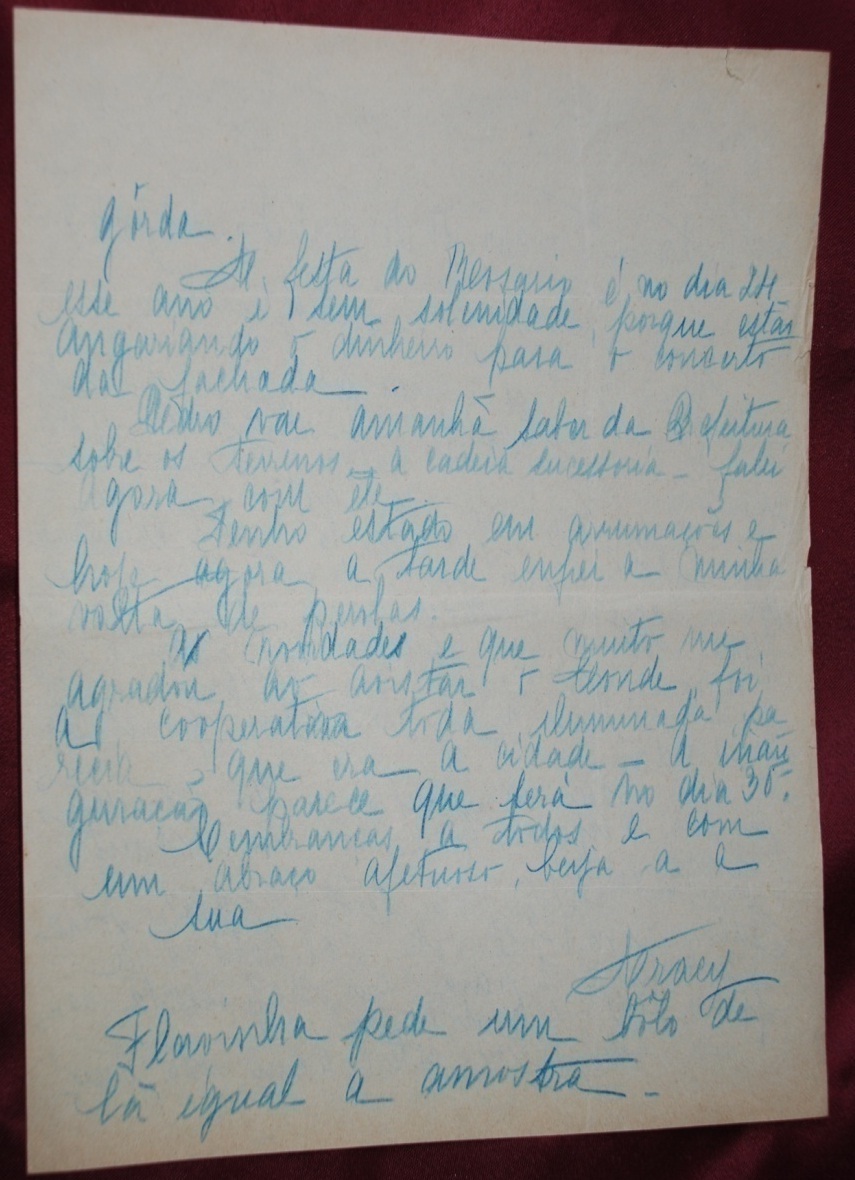 Górda.
A festa do é no dia 24
esse ano é sem solenidade, porque estão
angariando o dinheiro para o concerto
da fachada.
Pedro vai amanhã saber da Prefeitura
sobre os terrenos a cadeia sucessoria - falei
agora com êle.
Tenho estado em arrumações e
hoje agora a tarde enfiei a minha
volta de perolas.
As novidades e que muito me
agradou ao avistar o bonde, foi
a cooperativa toda iluminada pa
recia que era a cidade - A inau
guração parece que será no dia 30.
Lembranças a todos e com
um abraço afetuoso, beija a a
sua
Aracy
Flavinha pede um bôlo de
lã igual a amostra -